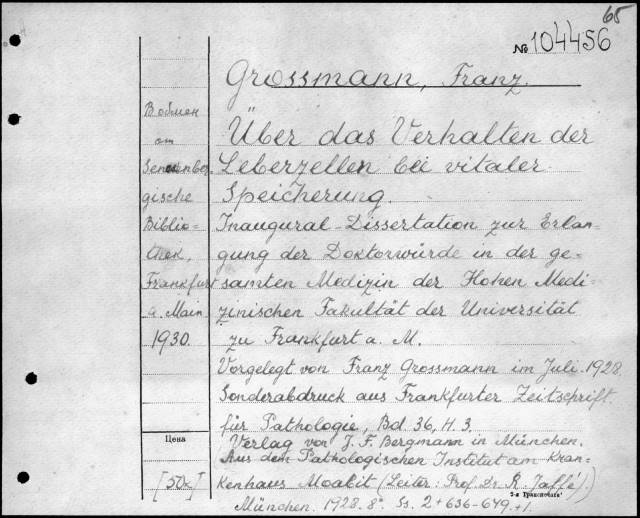 65
№ 104456
Grossmann, Franz.
Über das Verhalten der
Leberzellen bei vitaler
Speicherung.
Inaugural-Dissertation zur Erlan-
gung der Doktorwürde in der ge-
samten Medizin der Hohen Medi-
zinischen Fakultät der Universität
zu Frankfurt a. M.
Vorgelegt von Franz Grossmann im Juli 1928.
Sonderabdruck aus Frankfurter Zeitschrift
für Pathologie, Bd. 36, H. 3.
Verlag von J. F. Bergmann in München.
Aus dem Pathologischen Institut am Kran-
kenhaus Moabit (Leiter: Prof. Dr. R. Jaffé).)
München. 1928. 8°. Ss. 2+636-649.+1.
В обмен
от
gische
Biblio=
thek,
Frankfurt
a. Main
1930.
Цена
[50к]